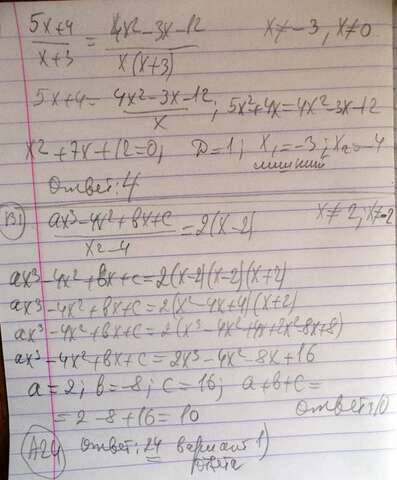 (5x+4)/(x+3) = (4x²-3x-12)/(x(x+3))   x≠-3, x≠0
5x+4 = (4x²-3x-12)/x ; 5x²+4x=4x²-3x-12
x2+7x+12=0, D=1; x₁=-3; x₂=-4
лишний
Ответ: 4
B1 (ax³-4x²+bx+c)/(x2-4) = 2(x-2)   x≠2; x≠-2
ax³-4x²+bx+c=2(x-2)(x-2)(x+2)
ax³-4x²+bx+c=2(x²-4x+4)(x+2)
ax³-4x²+bx+c=2(x³-4x²+4x+2x²-8x+8)
ax³-4x²+bx+c=2x³-4x²-8x+16
a=2; b=-8; c=16; a+b+c=
=2-8+16=10   Ответ: 10
A24 ответ: 24 вариант 1)